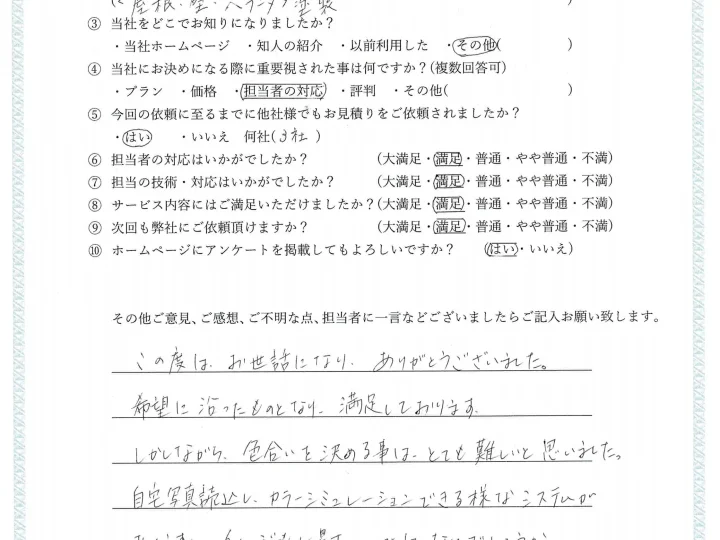 屋根・壁・ベランダ塗装
③ 当社をどこでお知りになりましたか？
・当社ホームページ ・知人の紹介 ・以前利用した ・その他( )
④ 当社にお決めになる際に重要視された事は何ですか？(複数回答可)
・プラン ・価格 ・担当者の対応 ・評判 ・その他( )
⑤ 今回の依頼に至るまでに他社様でもお見積りをご依頼されましたか？
・はい ・いいえ 何社(3社)
⑥ 担当者の対応はいかがでしたか？ (大満足・満足・普通・やや普通・不満)
⑦ 担当の技術・対応はいかがですか？ (大満足・満足・普通・やや普通・不満)
⑧ サービス内容にはご満足いただけましたか？(大満足・満足・普通・やや普通・不満)
⑨ 次回も弊社にご依頼頂けますか？ (大満足・満足・普通・やや普通・不満)
⑩ ホームページにアンケートを掲載してもよろしいですか？ (はい・いいえ)
その他ご意見、ご感想、ご不明な点、担当者に一言などございましたらご記入お願い致します。
この度は、お世話になり、ありがとうございました。
希望に沿ったものとなり、満足しております。
しかしながら、色合いを決める事は、とても難しいと思いました。
自宅写真読込し、カラーシミュレーションできる様なシステムが